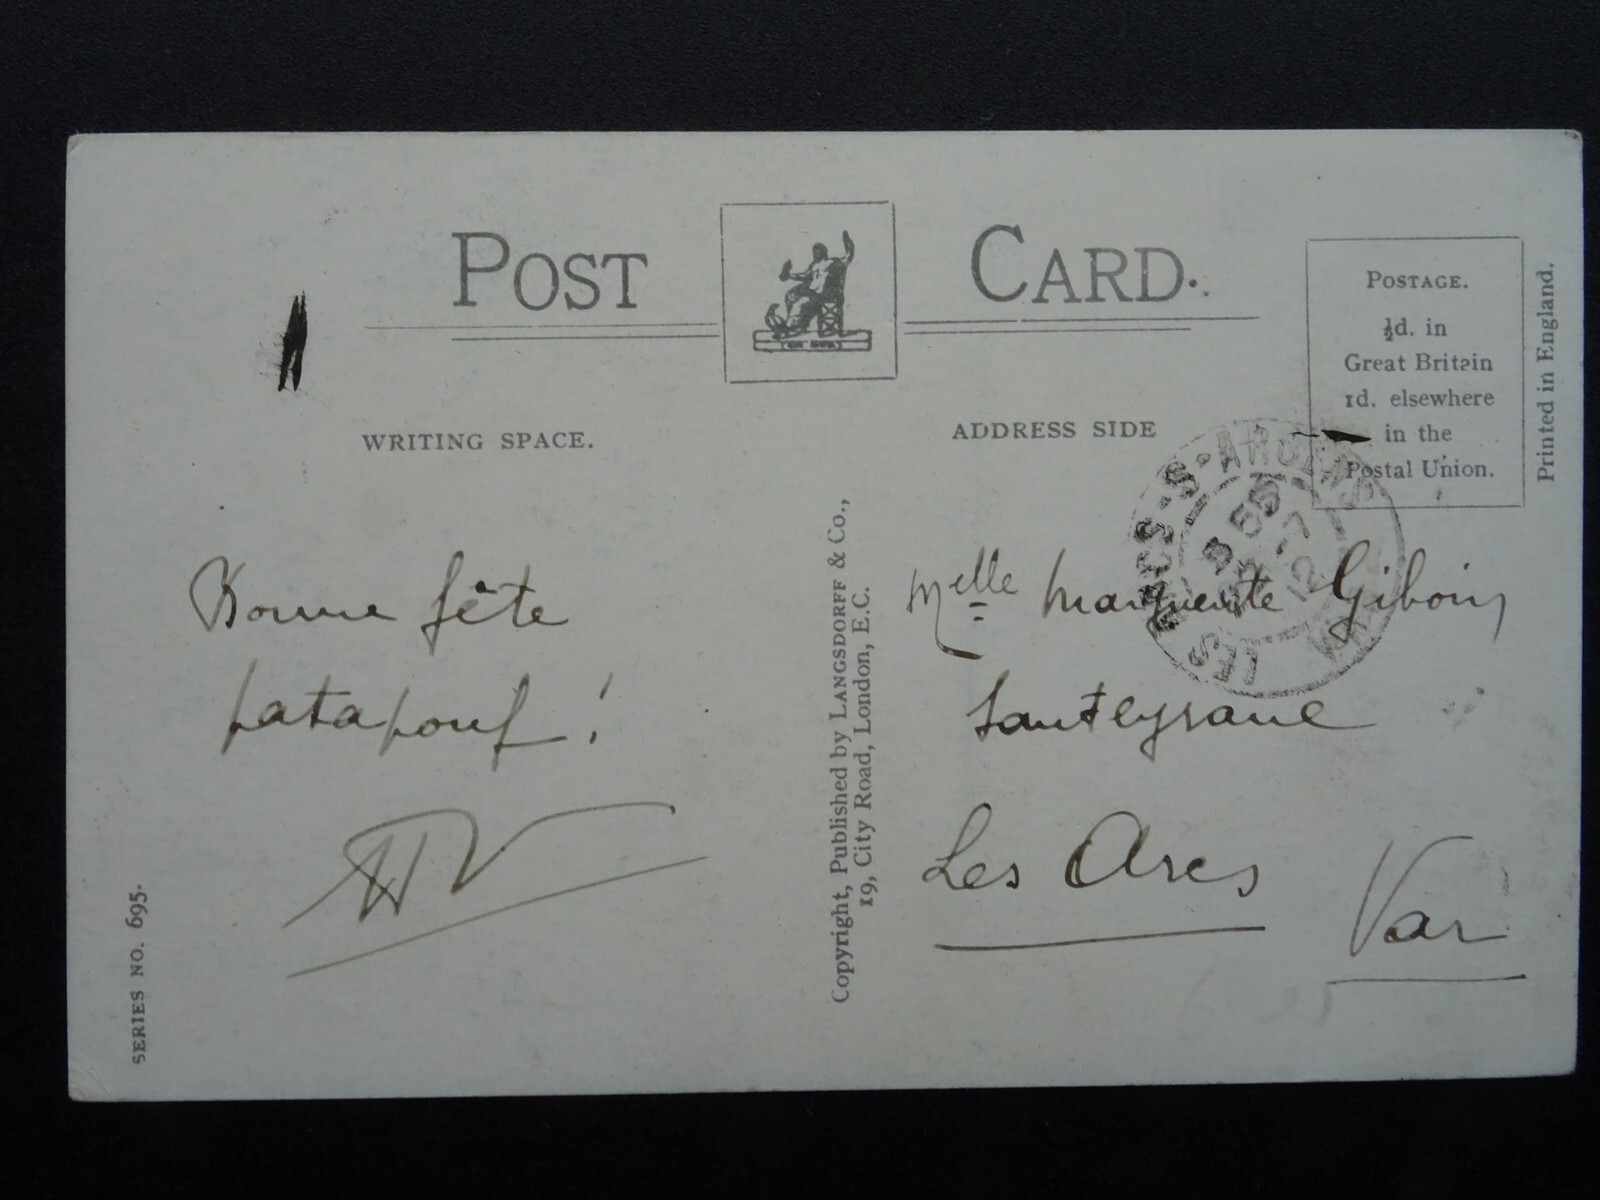 POST CARD.
POSTAGE.
½d. in
Great Britain
1d. elsewhere
in the
Postal Union.
Printed in England.
WRITING SPACE.
ADDRESS SIDE
LES ARCS-S-ARGENS
VAR
Bonne fête
patapouf !
HV
Copyright, Published by LANGSDORFF & Co.,
19, City Road, London, E.C.
Melle Marguerite Giboin
Les Arcs
Var
SERIES NO. 695.